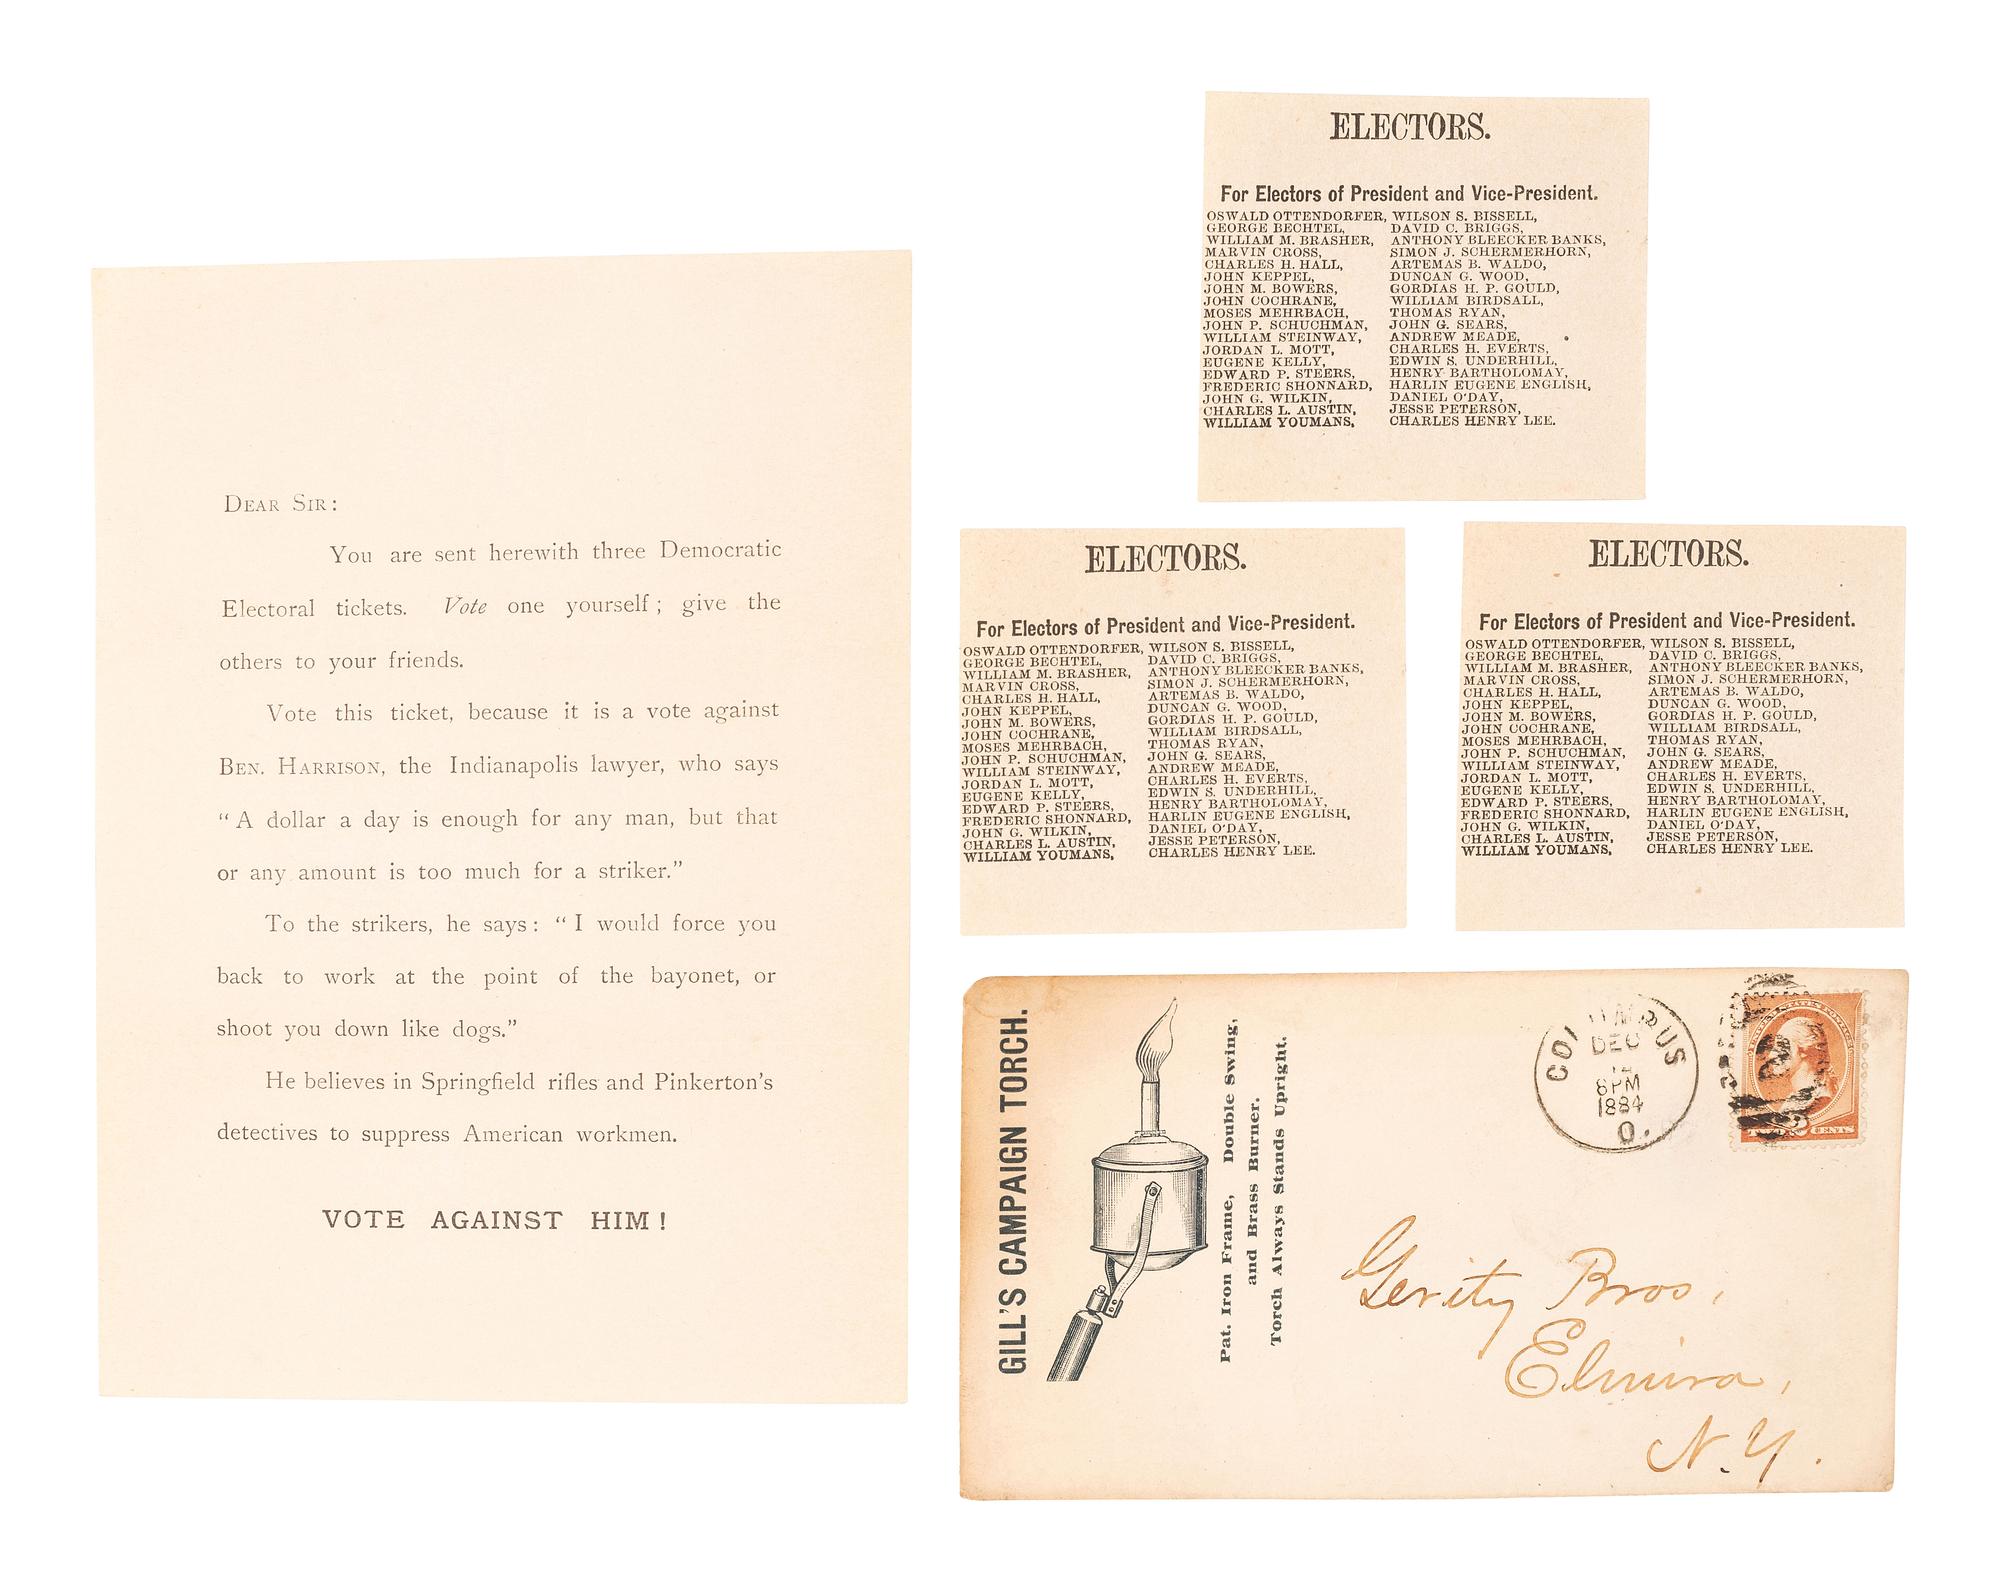 DEAR SIR:
You are sent herewith three Democratic
Electoral tickets. Vote one yourself; give the
others to your friends.
Vote this ticket, because it is a vote against
BEN. HARRISON, the Indianapolis lawyer, who says
“A dollar a day is enough for any man, but that
or any amount is too much for a striker.”
To the strikers, he says: “I would force you
back to work at the point of the bayonet, or
shoot you down like dogs.”
He believes in Springfield rifles and Pinkerton's
detectives to suppress American workmen.
VOTE AGAINST HIM!
ELECTORS.
For Electors of President and Vice-President.
OSWALD OTTENDORFER, WILSON S. BISSELL,
GEORGE BECHTEL, DAVID C. BRIGGS,
WILLIAM M. BRASHER, ANTHONY BLEECKER BANKS,
MARVIN CROSS, SIMON J. SCHERMERHORN,
CHARLES H. HALL, ARTEMAS B. WALDO,
JOHN KEPPEL, DUNCAN G. WOOD,
JOHN M. BOWERS, GORDIAS H. P. GOULD,
JOHN COCHRANE, WILLIAM BIRDSALL,
MOSES MEHRBACH, THOMAS RYAN,
JOHN P. SCHUCHMAN, JOHN G. SEARS,
WILLIAM STEINWAY, ANDREW MEADE,
JORDAN L. MOTT, CHARLES H. EVERTS,
EUGENE KELLY, EDWIN S. UNDERHILL,
EDWARD P. STEERS, HENRY BARTHOLOMAY,
FREDERIC SHONNARD, HARLIN EUGENE ENGLISH,
JOHN G. WILKIN, DANIEL O'DAY,
CHARLES L. AUSTIN, JESSE PETERSON,
WILLIAM YOUMANS, CHARLES HENRY LEE.
ELECTORS.
For Electors of President and Vice-President.
OSWALD OTTENDORFER, WILSON S. BISSELL,
GEORGE BECHTEL, DAVID C. BRIGGS,
WILLIAM M. BRASHER, ANTHONY BLEECKER BANKS,
MARVIN CROSS, SIMON J. SCHERMERHORN,
CHARLES H. HALL, ARTEMAS B. WALDO,
JOHN KEPPEL, DUNCAN G. WOOD,
JOHN M. BOWERS, GORDIAS H. P. GOULD,
JOHN COCHRANE, WILLIAM BIRDSALL,
MOSES MEHRBACH, THOMAS RYAN,
JOHN P. SCHUCHMAN, JOHN G. SEARS,
WILLIAM STEINWAY, ANDREW MEADE,
JORDAN L. MOTT, CHARLES H. EVERTS,
EUGENE KELLY, EDWIN S. UNDERHILL,
EDWARD P. STEERS, HENRY BARTHOLOMAY,
FREDERIC SHONNARD, HARLIN EUGENE ENGLISH,
JOHN G. WILKIN, DANIEL O'DAY,
CHARLES L. AUSTIN, JESSE PETERSON,
WILLIAM YOUMANS, CHARLES HENRY LEE.
ELECTORS.
For Electors of President and Vice-President.
OSWALD OTTENDORFER, WILSON S. BISSELL,
GEORGE BECHTEL, DAVID C. BRIGGS,
WILLIAM M. BRASHER, ANTHONY BLEECKER BANKS,
MARVIN CROSS, SIMON J. SCHERMERHORN,
CHARLES H. HALL, ARTEMAS B. WALDO,
JOHN KEPPEL, DUNCAN G. WOOD,
JOHN M. BOWERS, GORDIAS H. P. GOULD,
JOHN COCHRANE, WILLIAM BIRDSALL,
MOSES MEHRBACH, THOMAS RYAN,
JOHN P. SCHUCHMAN, JOHN G. SEARS,
WILLIAM STEINWAY, ANDREW MEADE,
JORDAN L. MOTT, CHARLES H. EVERTS,
EUGENE KELLY, EDWIN S. UNDERHILL,
EDWARD P. STEERS, HENRY BARTHOLOMAY,
FREDERIC SHONNARD, HARLIN EUGENE ENGLISH,
JOHN G. WILKIN, DANIEL O'DAY,
CHARLES L. AUSTIN, JESSE PETERSON,
WILLIAM YOUMANS, CHARLES HENRY LEE.
GILL'S CAMPAIGN TORCH.
Pat. Iron Frame, Double Swing,
and Brass Burner.
Torch Always Stands Upright.
COLUMBUS
DEC
8PM
1884
O.
Gerity Bros,
Elmira,
N.Y.